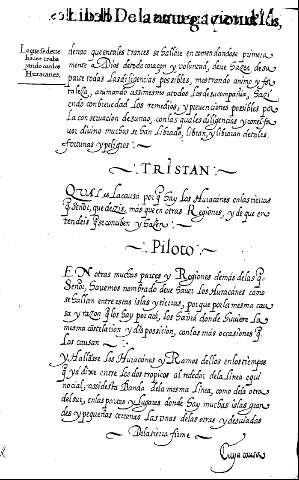 Lib.II. De la navegacion de las,
Lo que se deve
hazer traba
jando con los
Huracanes.
dense que en tales trances se hallare en comendandose primera
mente a Dios de todo coraçon y voluntad, deve hazer de su
parte todas Las diligencias possibles, mostrando animo y for
taleza, animando assimesmo a todos Los de su compañia, hazi
endo con brevedad Los remedios, y prevenciones possibles pa
La conservacion de su nao, con las quales diligencias y con el fa
vor divino muchas se han Librado, Libran, y Libraran de tales
fortunas y peligros.
TRISTAN
QUAL es La causa porq hay Los Huracanes en las tierras
q Señor, que dezis, mas que en otras Regiones, y de que en
tendeis q se causan y hazen.
Piloto
EN otras muchas partes y Regiones demas de las q
Señor, havemos nombrado deve haver Los Huracanes como
se hallan entre estas islas y tierras, porque por la mesma cau
sa y razon q los hay por acà, los havrà donde tuviere La
mesma costelacion y disposicion, con las mas occasiones q
Los causan
y Hallarse Los Huracanes y Ramos dellos en los tiempos
q yà dixe entre los dos tropicos al rededor de la Linea equi
nocial, assi desta Banda de la mesma Linea, como de la otra
del sur, en las partes y Lugares donde hay muchas islas gran
des y pequeñas cercanas Las unas de las otras y desviadas
De la tierra firme
Cuya causa